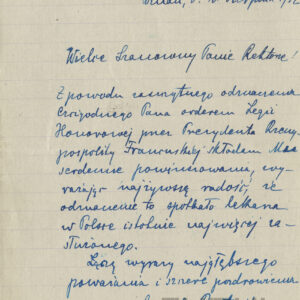 Wielce Szanowny Panie Rektorze!
Z powodu zaszczytnego odznaczenia
Czcigodnego Pana orderem Legii
Honorowej przez Prezydenta Rzeczy
pospolitej Francuskiej składam Mu
serdeczne powinszowania, wy-
rażając najżywszą radość, że
odznaczenie to spotkało lekarza
w Polsce istotnie najwięcej za-
służonego.
Łączę wyrazy najgłębszego
poważania i szczere pozdrowienia